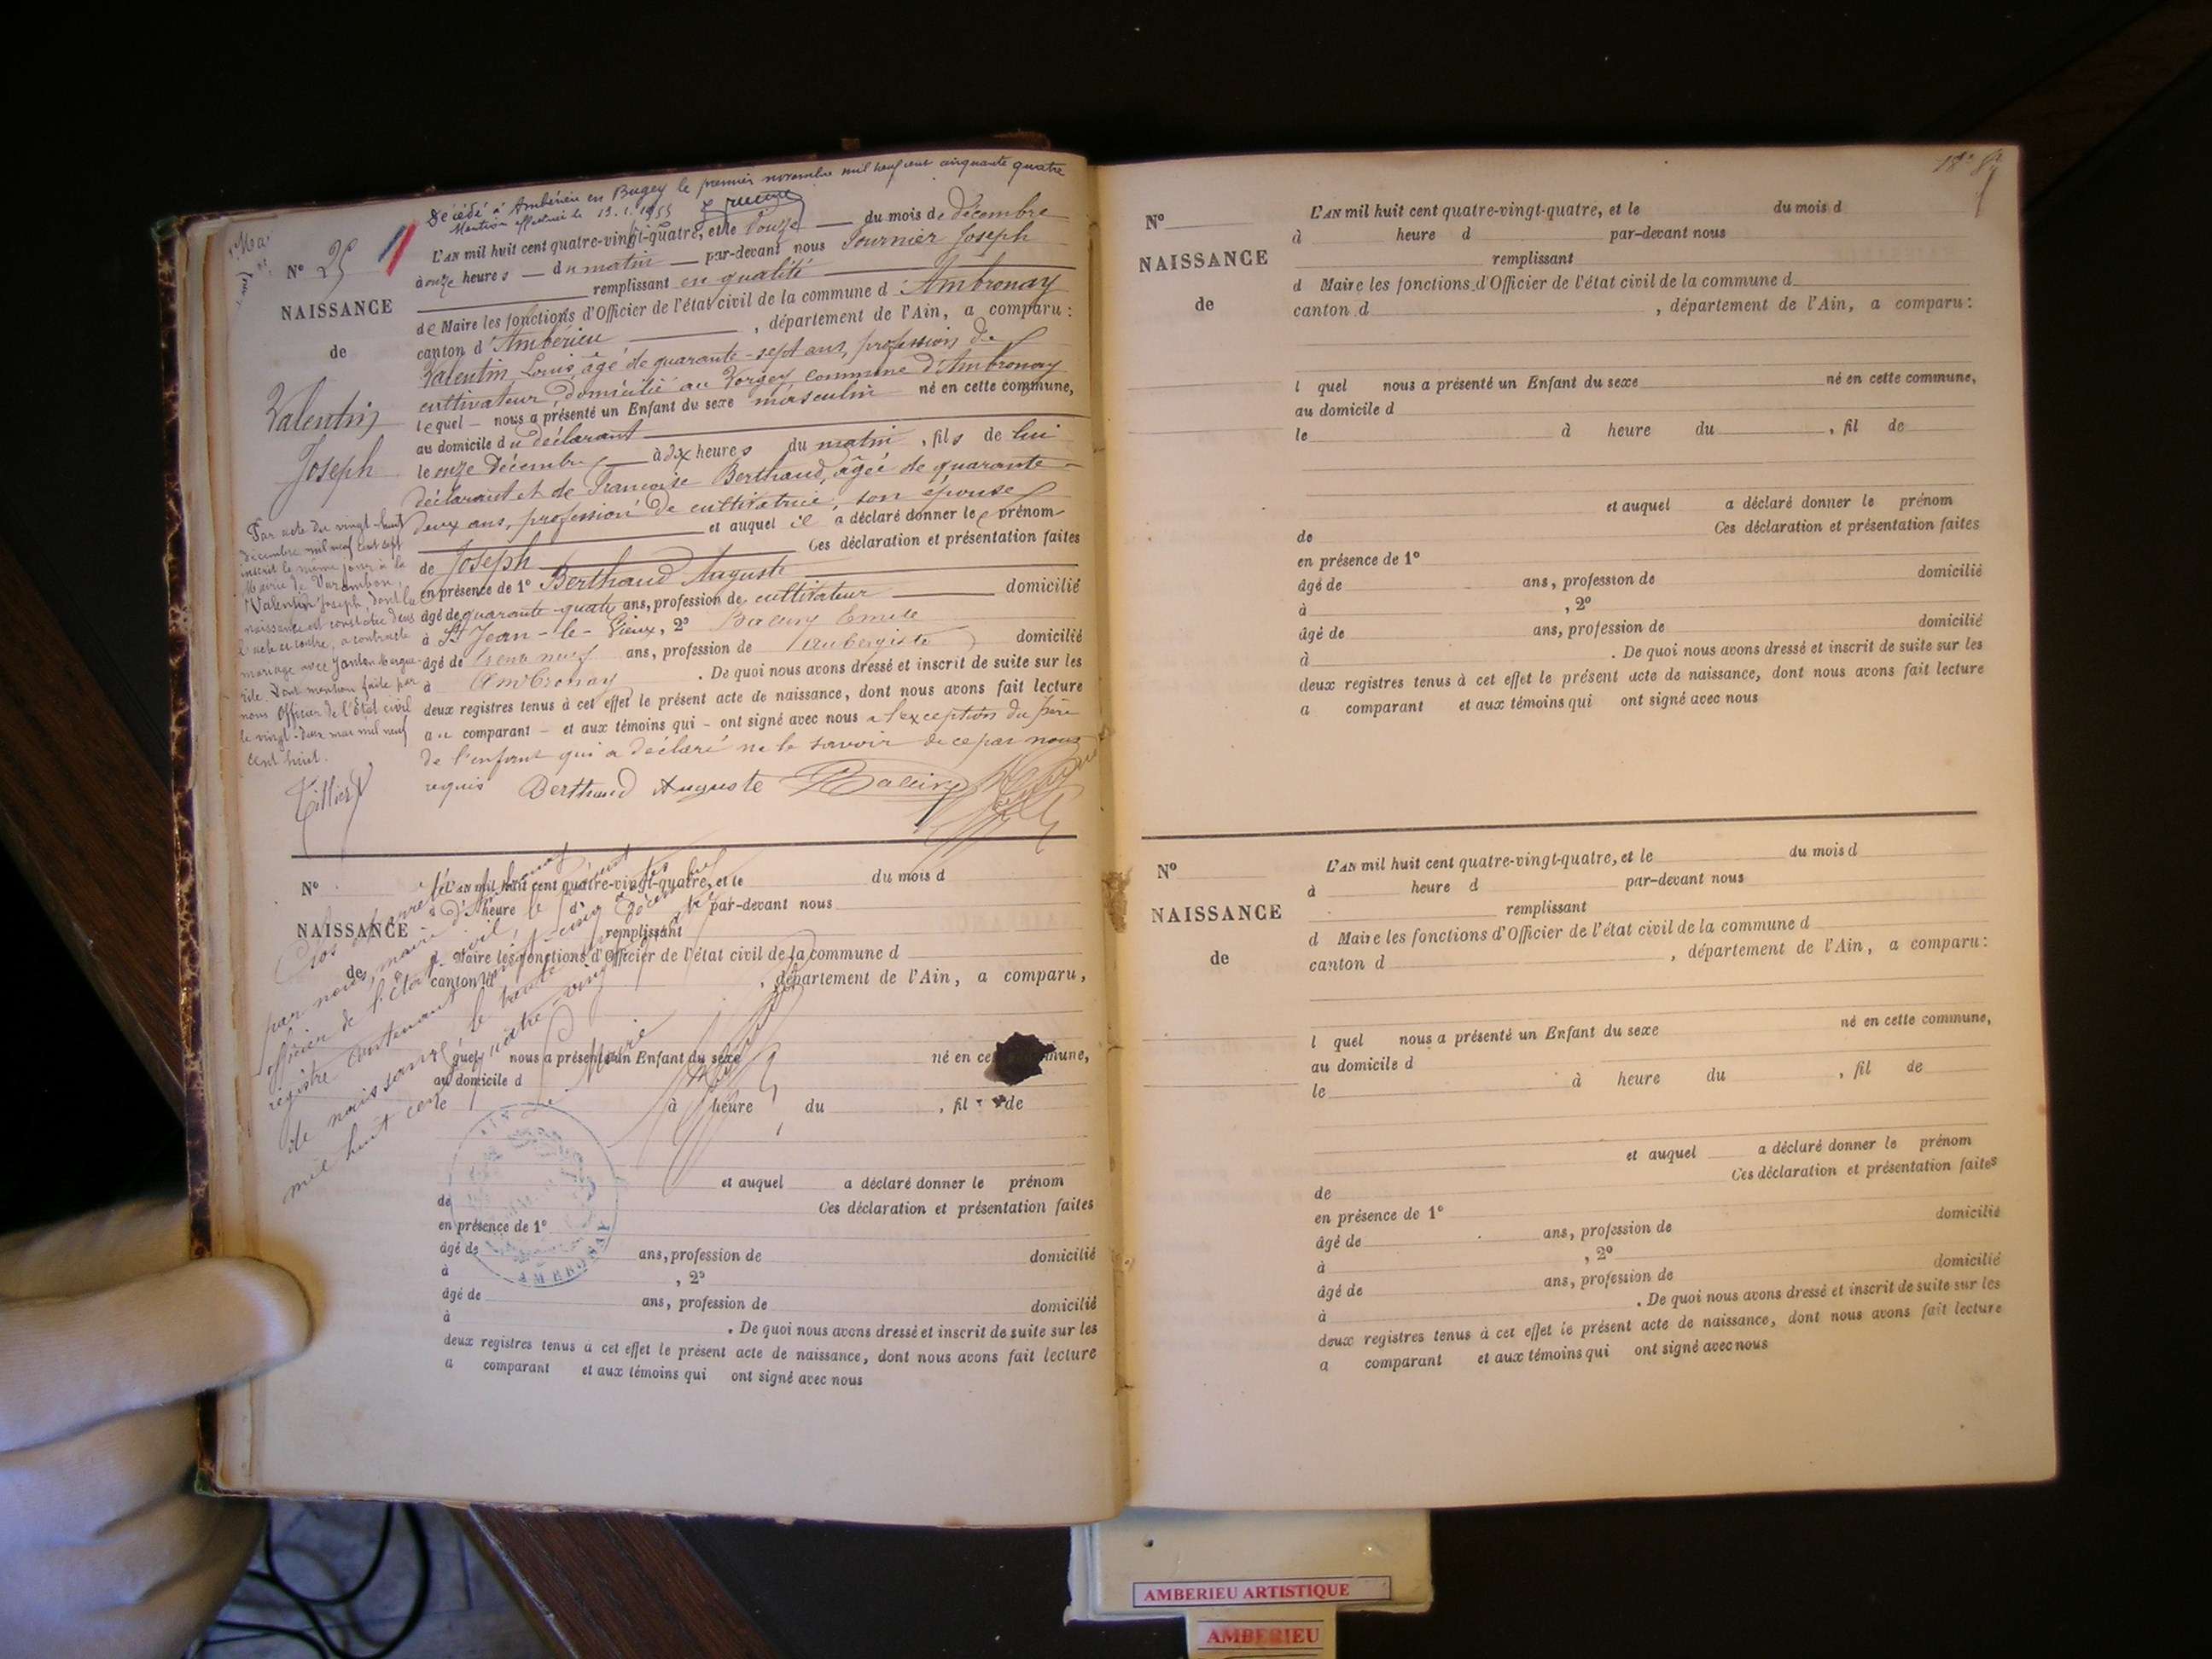 Décédé à Ambérieu en Bugey le premier novembre mil neuf cent cinquante quatre
Mention effectuée le 13.1.1955
N° 25
NAISSANCE
de
Valentin
Joseph
L'AN mil huit cent quatre-vingt-quatre, et le douze du mois de décembre
à onze heures du matin par-devant nous Fournier Joseph
remplissant en qualité
de Maire les fonctions d'Officier de l'état civil de la commune d'Ambronay
canton d'Ambérieu , département de l'Ain, a comparu :
Valentin Louis, âgé de quarante-sept ans, profession de
cultivateur domicilié au Vorgey, commune d'Ambronay
lequel nous a présenté un Enfant du sexe masculin né en cette commune,
au domicile du déclarant
le onze Décembre à dix heures du matin , fils de lui
déclarant et de Françoise Berthaud, âgée de quarante-
deux ans, profession de cultivatrice, son épouse
et auquel il a déclaré donner le prénom
de Joseph Ces déclaration et présentation faites
en présence de 1° Berthaud Auguste
âgé de quarante-quatre ans, profession de cultivateur domicilié
à St Jean-le-Vieux, 2° Emile
âgé de trente neuf ans, profession de aubergiste domicilié
à Ambronay . De quoi nous avons dressé et inscrit de suite sur les
deux registres tenus à cet effet le présent acte de naissance, dont nous avons fait lecture
au comparant et aux témoins qui ont signé avec nous à l'exception du père
de l'enfant qui a déclaré ne le savoir de ce par nous
requis Berthaud Auguste
Par acte du vingt-huit
décembre mil neuf cent sept
inscrit le même jour à la
Mairie de Varambon,
Valentin Joseph, dont la
naissance est constatée dans
l'acte ci contre, a contracté
mariage avec Janton Margue-
rite. Dont mention faite par
nous Officier de l'Etat civil
le vingt-deux mai mil neuf
cent huit.
Tillier
N°
NAISSANCE
de
L'AN mil huit cent quatre-vingt-quatre, et le du mois d
à heure d par-devant nous
remplissant
d Maire les fonctions d'Officier de l'état civil de la commune d
canton d , département de l'Ain, a comparu,
l quel nous a présenté un Enfant du sexe né en ce mune,
au domicile d
le à heure du , fil de
et auquel a déclaré donner le prénom
de Ces déclaration et présentation faites
en présence de 1°
âgé de ans, profession de domicilié
à , 2°
âgé de ans, profession de domicilié
à . De quoi nous avons dressé et inscrit de suite sur les
deux registres tenus à cet effet le présent acte de naissance, dont nous avons fait lecture
a comparant et aux témoins qui ont signé avec nous
par nous, maire
officier de l'état civil,
registre contenant vingt-cinq
de naissance, le trente
mil huit cent quatre-vingt
N°
NAISSANCE
de
L'AN mil huit cent quatre-vingt-quatre, et le du mois d
à heure d par-devant nous
remplissant
d Maire les fonctions d'Officier de l'état civil de la commune d
canton d , département de l'Ain, a comparu :
l quel nous a présenté un Enfant du sexe né en cette commune,
au domicile d
le à heure du , fil de
et auquel a déclaré donner le prénom
de Ces déclaration et présentation faites
en présence de 1°
âgé de ans, profession de domicilié
à , 2°
âgé de ans, profession de domicilié
à . De quoi nous avons dressé et inscrit de suite sur les
deux registres tenus à cet effet le présent acte de naissance, dont nous avons fait lecture
a comparant et aux témoins qui ont signé avec nous
N°
NAISSANCE
de
L'AN mil huit cent quatre-vingt-quatre, et le du mois d
à heure d par-devant nous
remplissant
d Maire les fonctions d'Officier de l'état civil de la commune d
canton d , département de l'Ain, a comparu :
l quel nous a présenté un Enfant du sexe né en cette commune,
au domicile d
le à heure du , fil de
et auquel a déclaré donner le prénom
de Ces déclaration et présentation faites
en présence de 1°
âgé de ans, profession de domicilié
à , 2°
âgé de ans, profession de domicilié
à . De quoi nous avons dressé et inscrit de suite sur les
deux registres tenus à cet effet le présent acte de naissance, dont nous avons fait lecture
a comparant et aux témoins qui ont signé avec nous
AMBERIEU ARTISTIQUE
AMBERIEU